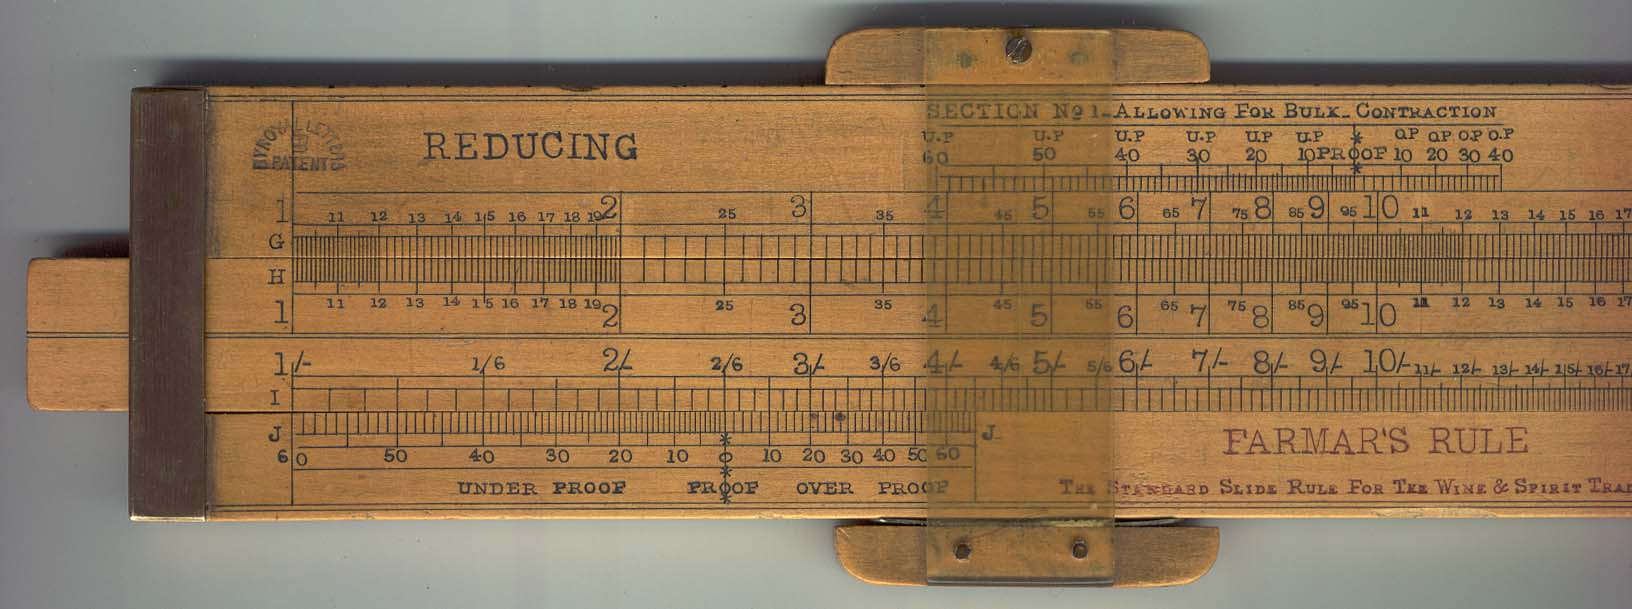 SECTION No 1_ALLOWING FOR BULK_CONTRACTION
REDUCING
PATENT
U.P U.P U.P U.P U.P U.P * O.P O.P O.P O.P
60 50 40 30 20 10 PROOF 10 20 30 40
1 11 12 13 14 15 16 17 18 19 2 25 3 35 4 45 5 55 6 65 7 75 8 85 9 95 10 11 12 13 14 15 16 17
G
H
1 11 12 13 14 15 16 17 18 19 2 25 3 35 4 45 5 55 6 65 7 75 8 85 9 95 10 11 12 13 14 15 16 17
1/- 1/6 2/- 2/6 3/- 3/6 4/- 4/6 5/- 5/6 6/- 7/- 8/- 9/- 10/- 11/- 12/- 13/- 14/- 15/- 16/- 17
I
J J
60 50 40 30 20 10 0 10 20 30 40 50 60
UNDER PROOF PROOF OVER PROOF
FARMAR'S RULE
THE STANDARD SLIDE RULE FOR THE WINE & SPIRIT TRAD